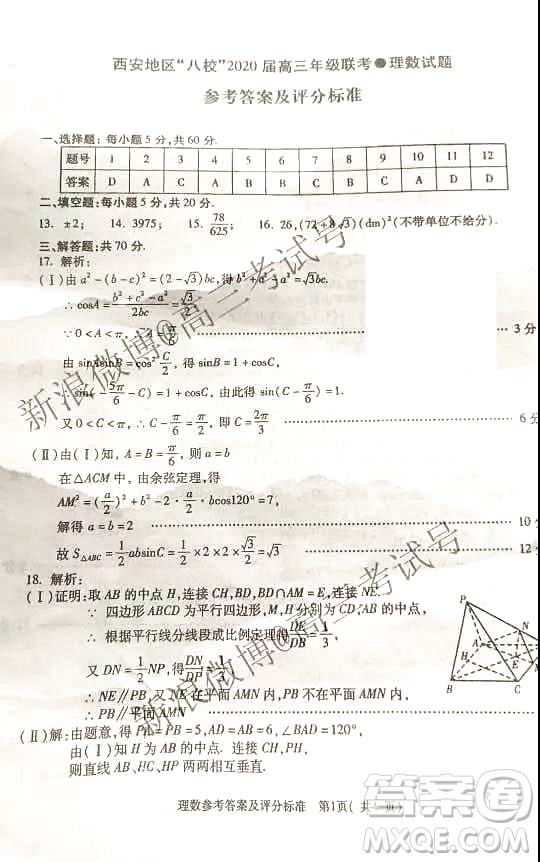 西安地区“八校”2020届高三年级联考●理数试题
参考答案及评分标准
一、选择题:每小题5分,共60分.
题号 1 2 3 4 5 6 7 8 9 10 11 12
答案 D A C A B C D B C A D D
二、填空题:每小题5分,共20分.
13. ±2; 14. 3975; 15. 78/625; 16. 26,(72+8√3)(dm)²(不带单位不给分)
三、解答题:共70分.
17. 解析:
(Ⅰ)由a²-(b-c)²=(2-√3)bc,得a²-b²-c²=-√3bc.
∴cosA=(b²+c²-a²)/2bc=√3/2
∵0<A<π,∴A=π/6 3分
由sinAsinB=cos²C/2,得sinB=1+cosC.
∴sin(5π/6-C)=1+cosC,即cos(C+π/3)=-1
又0<C<π,∴C-π/6=π/2,即C=2π/3 6分
(Ⅱ)由(Ⅰ)知,A=B=π/6,所以a=b
在△ACM中,由余弦定理,得
AM²=(a/2)²+b²-2·a/2·bcos120°=
解得a=b=2 10分
故S△ABC=1/2absinC=1/2×2×2×√3/2=√3 12分
18. 解析:
(Ⅰ)证明:取AB的中点H,连接CH,BD,BD∩AM=E,连接NE.
∵四边形ABCD为平行四边形,M,H分别为
∴根据平行线分线段成比例定理得DE/DB=1/3
又DN=1/2NP,得DN/DP=1/3
∴NE∥PB,又NE在平面AMN内,PB不在平面AMN内
∴PB∥平面AMN
P
N
A
M
B
C
(Ⅱ)解:由题意,得PA=PB=5,AD=6,∠BAD=120°,
由(Ⅰ)知H为AB的中点.连接CH,PH,CA
则直线CD、HC、HP两两相互垂直.
理数参考答案及评分标准 第1页(共
新浪微博@高三考试号
新浪微博@高三考试号